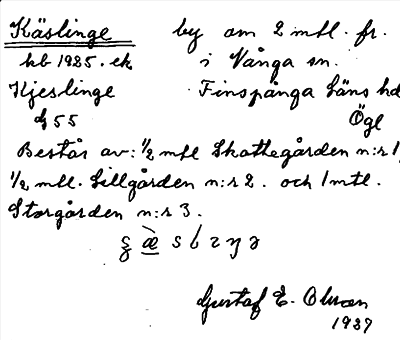 Käslinge by om 2 mtl. fr.
kb 1925. ek i Vånga sn.
Kjeslinge Finspånga läns hd
G 55 Ögl
Består av: 1/2 mtl Skattegården n:r 1,
1/2 mtl. Lillgården n:r 2. och 1 mtl.
Storgården n:r 3.
Gustaf E. Olsson
1937